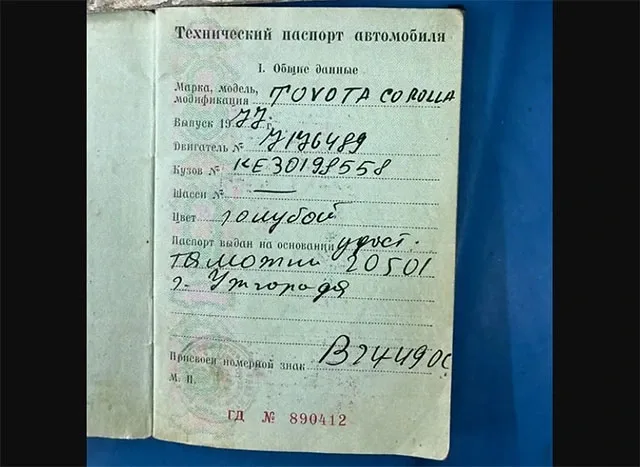 Технический паспорт автомобиля
I. Общие данные
Марка, модель, модификация TOYOTA COROLLA
Выпуск 1977 г.
Двигатель №
Кузов № KE30198558
Шасси № —
Цвет голубой
Паспорт выдан на основании удост.
таможни 20501
г. Ужгорода
Присвоен номерной знак
М. П.
ГД № 890412